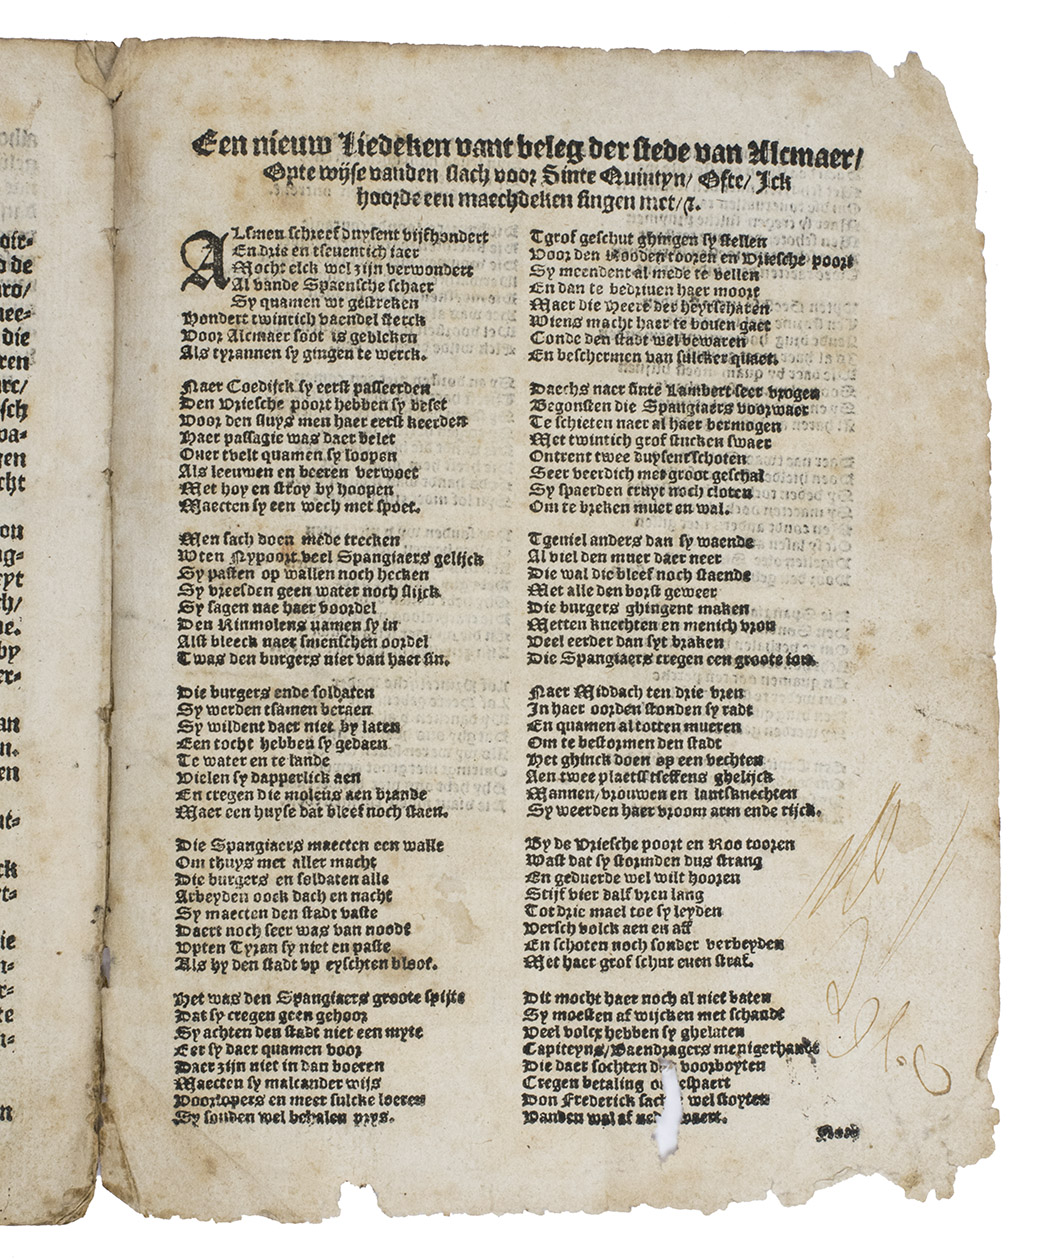 Een nieuw Liedeken vant beleg der stede van Alcmaer/
Opte wijse vanden slach voor Sinte Quintyn/ Ofte/ Ick
hoorde een maechdeken singen met/ꝛ.
ALsmen schreef duysent vijfhondert
En drie en tseuentich iaer
Mocht elck wel zijn verwondert
Al vande Spaensche schaer
Sy quamen wt gestreken
Hondert twintich vaendel sterck
Voor Alcmaer soot is gebleken
Als tyrannen sy gingen te werck.
Naer Coedijck sy eerst passeerden
Den Vriesche poort hebben sy beset
Voor den sluys men haer eerst keerden
Haer passagie was daer belet
Ouer tvelt quamen sy loopen
Als leeuwen en beeren verwoet
Met hoy en stroy by hoopen
Maecten sy een wech met spoet.
Men sach doen mede trecken
Wten Nypoort veel Spangiaers gelijck
Sy pasten op wallen noch hecken
Sy vreesden geen water noch slijck
Sy sagen nae haer voordel
Den Rinmolens namen sy in
Alst bleeck naer smenschen oordel
Twas den burgers niet van haer sin.
Die burgers ende soldaten
Sy werden tsamen beraen
Sy wildent daer niet by laten
Een tocht hebben sy gedaen
Te water en te lande
Vielen sy dapperlick aen
En cregen die molens aen brande
Maer een huyse dat bleef noch staen.
Die Spangiaers maecten een walle
Om thuys met aller macht
Die burgers en soldaten alle
Arbeyden oock dach en nacht
Sy maecten den stadt vaste
Daert noch seer was van noode
Opten Tyran sy niet en paste
Als hy den stadt op eyschten bloot.
Het was den Spangiaers groote spijte
Dat sy cregen geen gehoor
Sy achten den stadt niet een myte
Eer sy daer quamen voor
Daer zijn niet in dan boeren
Maecten sy malcander wijs
Voorlopers en meer sulcke loeren
Sy souden wel behalen prys.
Tgrof geschut ghingen sy stellen
Voor den Rooden tooren en Vriesche poort
Sy meendent al mede te vellen
En dan te bedriuen haer moort
Maer die Heere der heyrscharen
Wiens macht haer te bouen gaet
Conde den stadt wel bewaren
En beschermen van sulcker quaet.
Daechs naer sinte Lambert seer vrogen
Begonsten die Spangiaers voorwaer
Te schieten naer al haer vermogen
Met twintich grof stucken swaer
Ontrent twee duysent schoten
Seer veerdich met groot geschal
Sy spaerden cruyt noch cloten
Om te breken muer en wal.
Tgeniel anders dan sy waende
Al viel den muer daer neer
Die wal die bleef noch staende
Met alle den borst geweer
Die burgers ghingent maken
Metten knechten en menich vrou
Veel eerder dan syt braken
Die Spangiaers cregen een groote iou.
Naer Middach ten drie vren
In haer oorden stonden sy radt
En quamen al totten mueren
Om te bestormen den stadt
Het ghinck doen op een vechten
Aen twee plaetsen tseffens ghelijck
Mannen/ vrouwen en lantsknechten
Sy weerden haer vroom arm ende rijck.
By de Vriesche poort en Roo tooren
Wast dat sy stormden dus strang
En geduerde wel wilt hooren
Stijf vier half vren lang
Tot drie mael toe sy leyden
Versch volck aen en aff
En schoten noch sonder verbeyden
Met haer grof schut euen straf.
Dit mocht haer noch al niet baten
Sy moesten af wijcken met schande
Veel volcx hebben sy ghelaten
Capiteyns/ Vaendragers menigerhande
Die daer sochten voorboyten
Cregen betaling espaert
Don Frederick sach wel stoyten
Vanden wal af